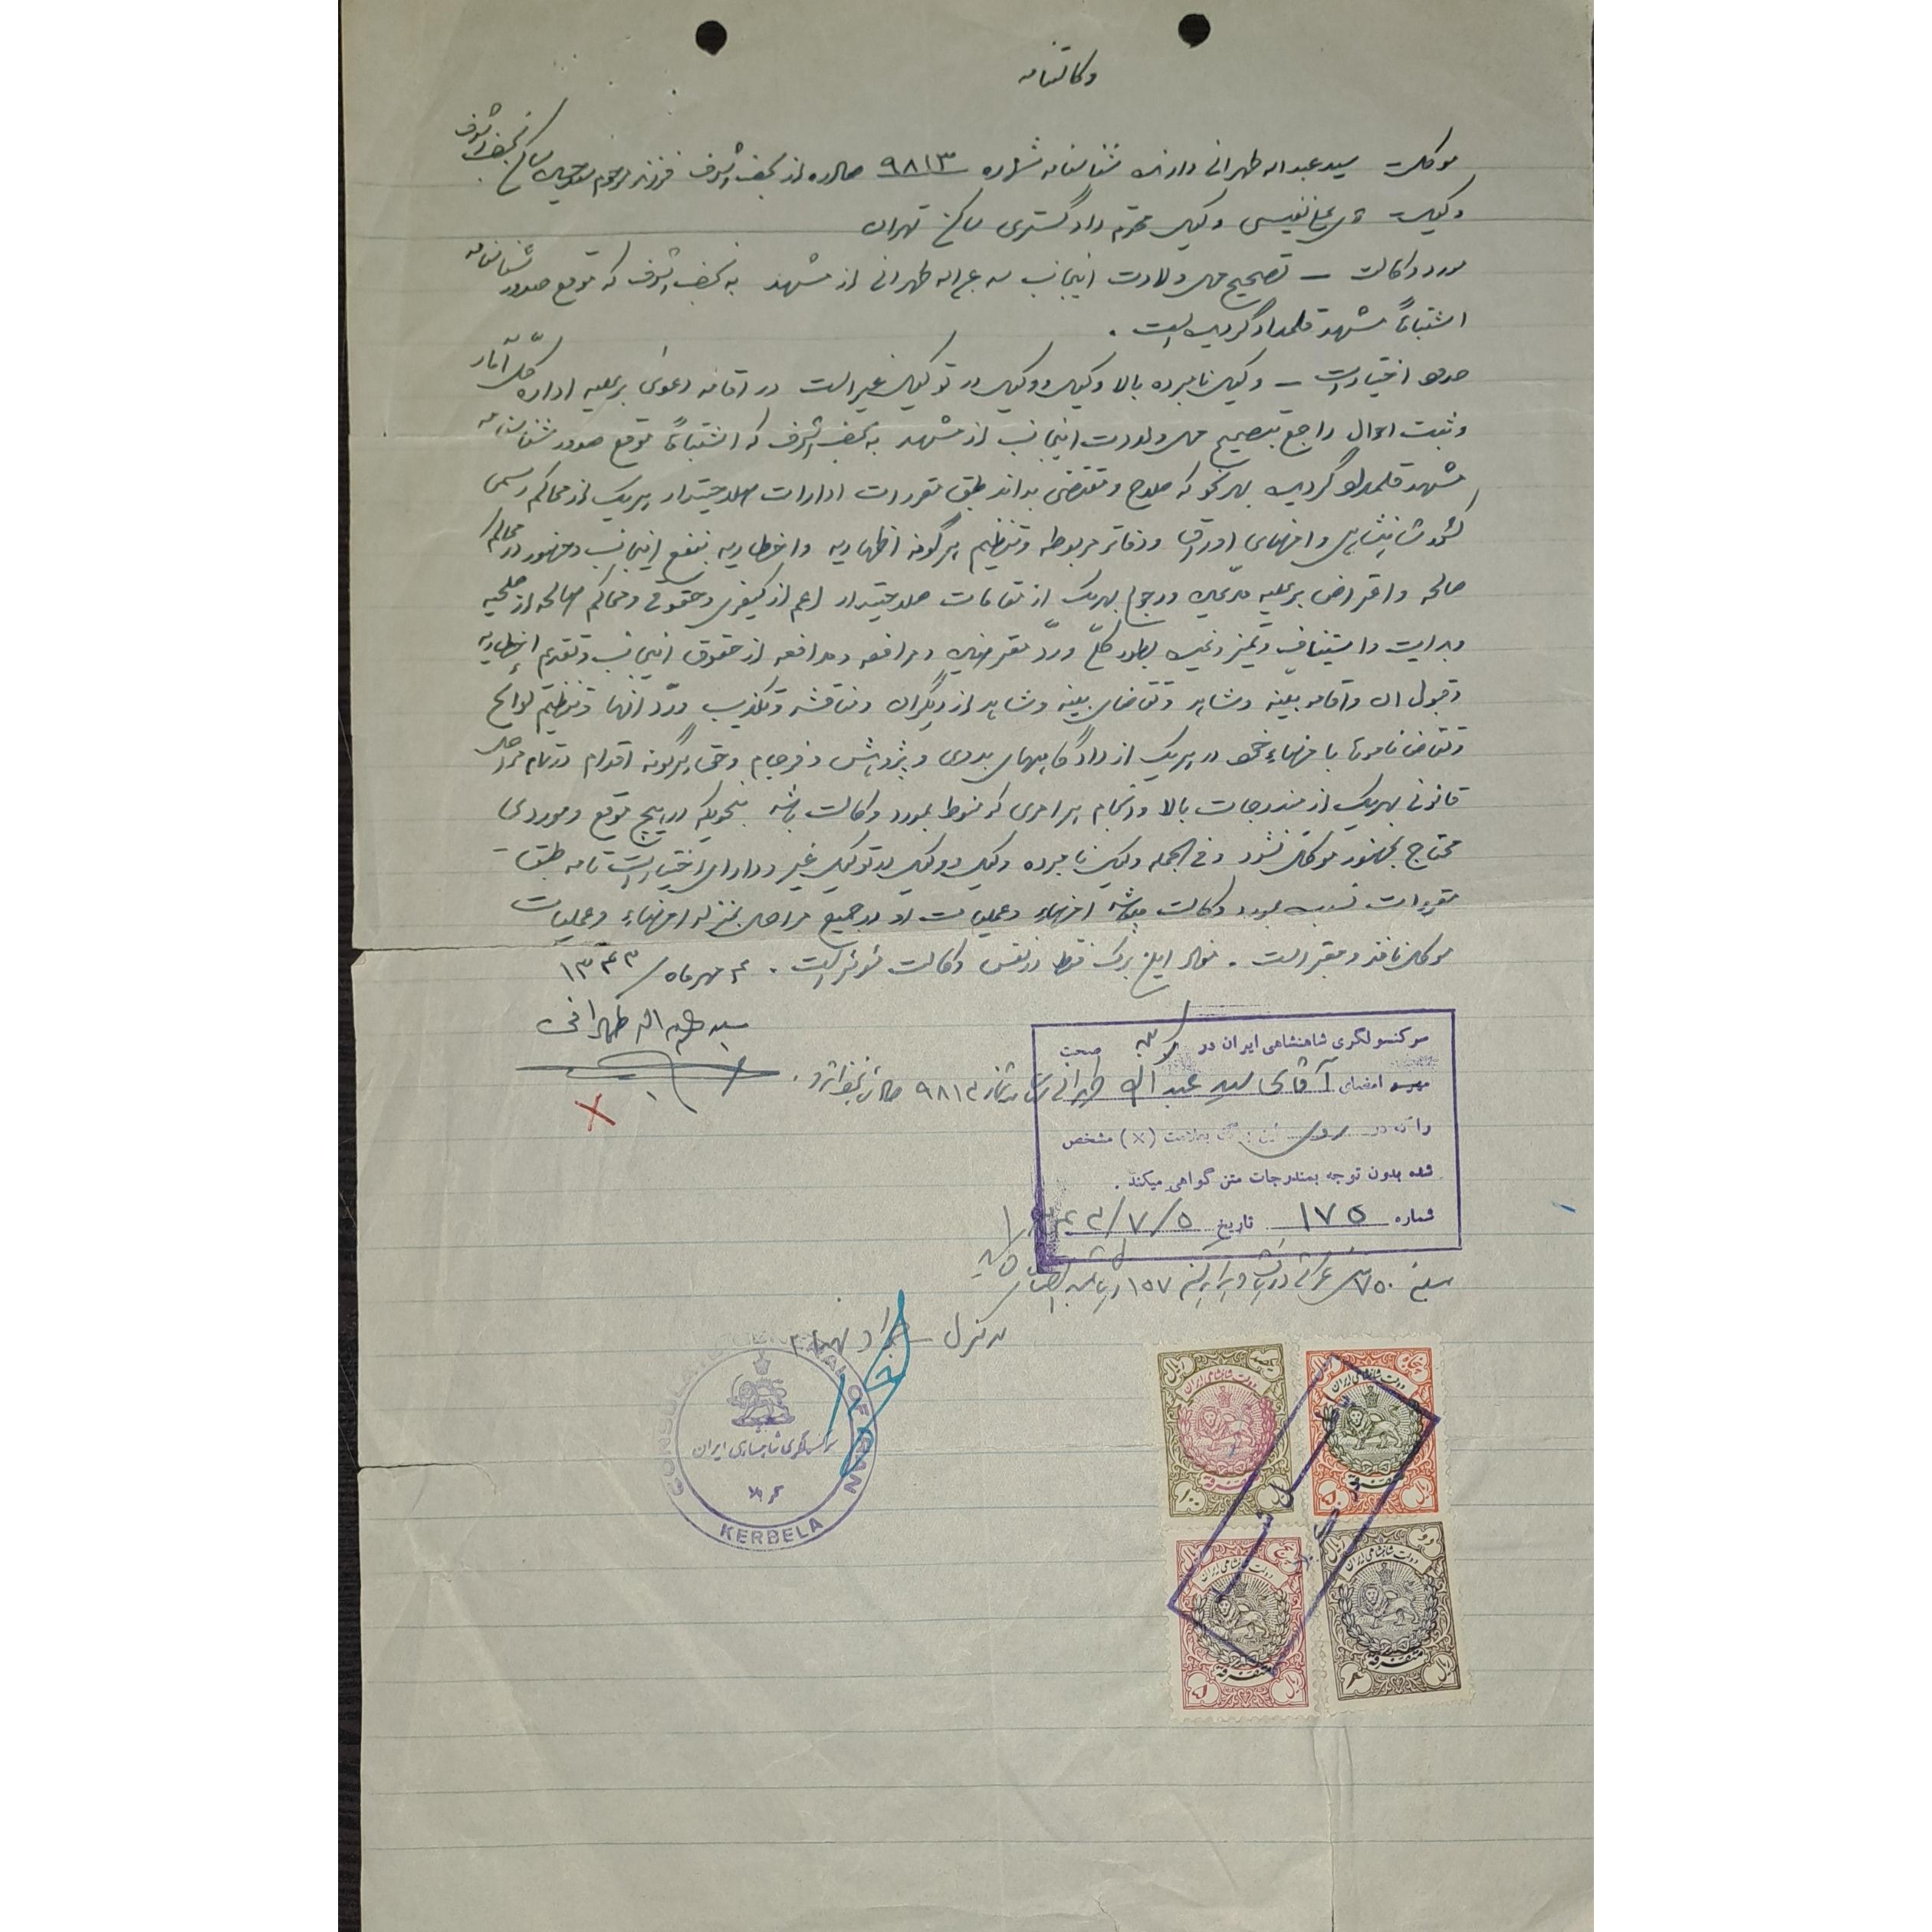 وکالتنامه
موکل سید عبداله طهرانی دارنده شناسنامه شماره ۹۸۱۳ صادره از نجف اشرف فرزند مرحوم ساکن نجف اشرف
وکیل نفیسی وکیل محترم دادگستری ساکن تهران
مورد وکالت – تصحیح محل ولادت اینجانب سید عبداله طهرانی از مشهد به نجف اشرف که موقع صدور شناسنامه
اشتباهاً مشهد قلمداد گردیده است .
حدود اختیارات – وکیل نامبرده بالا وکیل و وکیل در توکیل غیر است در اقامه دعوی برعلیه اداره کل آمار
و ثبت احوال راجع بتصحیح محل ولادت اینجانب از مشهد به نجف اشرف که اشتباهاً موقع صدور شناسنامه
مشهد قلمداد گردیده بهر نحو که صلاح و مقتضی بداند طبق مقررات ادارات صلاحیتدار بهریک از محاکم رسمی
کشور شاهنشاهی و امضای اوراق و دفاتر مربوطه و تنظیم هرگونه اظهاریه و اخطاریه بنفع اینجانب و حضور در محاکم
صالحه و اعتراض برعلیه و رجوع بهریک از مقامات صلاحیتدار اعم از کیفری و حقوقی و محاکم صالحه از صلحیه
و بدایت و استیناف و تمیز و غیره بطور کلی و رد معترضین و مرافعه و مدافعه از حقوق اینجانب و تقدیم اظهاریه
و قبول ان و اقامه بینه و شاهد و تقاضای بینه و شاهد از دیگران و مناقشه و تکذیب و رد آنها و تنظیم لوایح
و تقاضانامه‌ها با امضاء خود در هریک از دادگاههای بدوی و پژوهش و فرجام و حق هرگونه اقدام در تمام مراحل
قانونی بهریک از مندرجات بالا و انجام هر امری که منوط بمورد وکالت باشد بنحویکه در هیچ موقع و موردی
محتاج بحضور موکل نشود و فی الجمله وکیل نامبرده وکیل و وکیل در توکیل غیر و دارای اختیارات تامه طبق
مقررات نسبت بمورد وکالت میباشد امضاء و عملیات او در جمیع مراحل بمنزله امضاء و عملیات
موکل نافذ و معتبر است . مفاد این برگ فقط در نفس وکالت مؤثر است . ۴ مهرماه / ۱۳۴۳
سید عبداله طهرانی
X
سرکنسولگری شاهنشاهی ایران در کربلا صحت
مهر و امضای آقای سید عبداله طهرانی شناسنامه ۹۸۱۳ صادره نجف اشرف .
را که در روی این برگ بعلامت (×) مشخص
شده بدون توجه بمندرجات متن گواهی میکند .
شماره ۱۷۵ تاریخ ۴۳/۷/۵
مبلغ ۷۵۰ فلس عراقی دریافت و برابر ۱۵۷ ریال تمبر الصاق
سرکنسول
CONSULATE GENERAL OF IRAN
سرکنسولگری شاهنشاهی ایران
کربلا
KERBELA
دولت شاهنشاهی ایران
متفرقه
۱۰۰
دولت شاهنشاهی ایران
متفرقه
۵۰ ریال
باطل شد
دولت شاهنشاهی ایران
متفرقه
۵ ریال
دولت شاهنشاهی ایران
متفرقه
۲ ریال